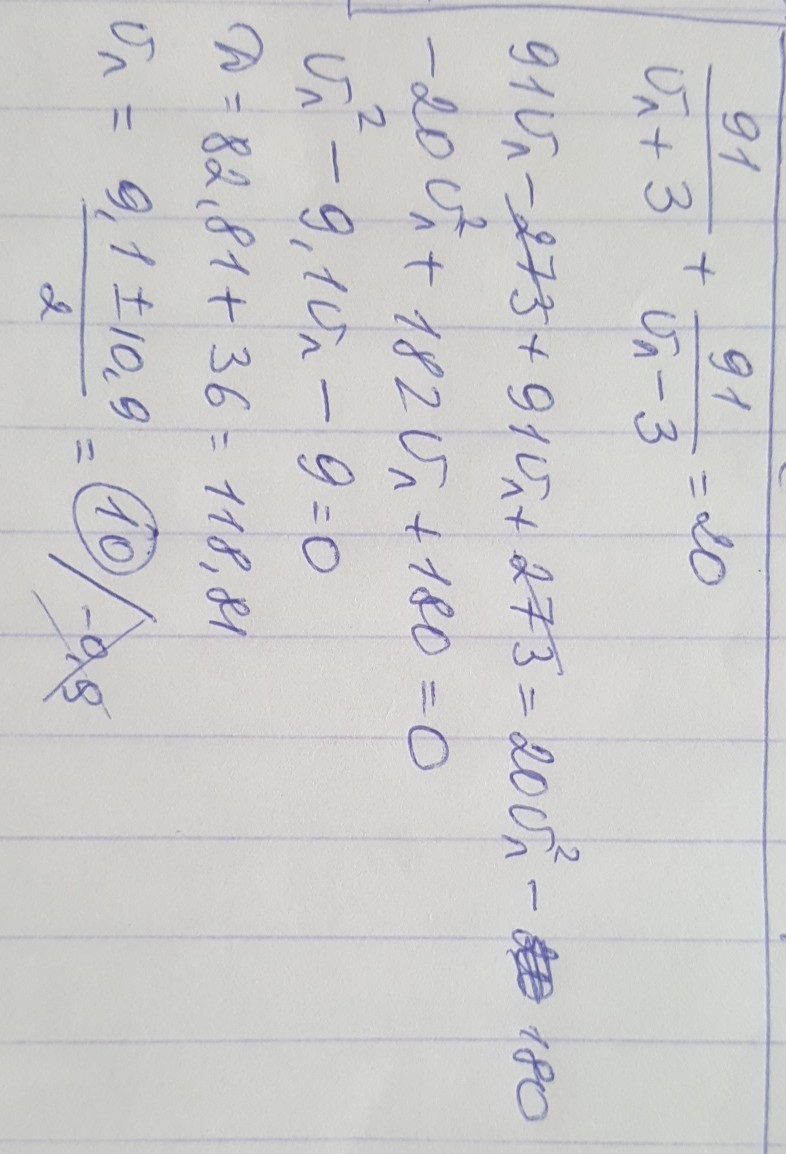 91/(vл + 3) + 91/(vл - 3) = 20
91vл - 273 + 91vл + 273 = 20vл² - 180
-20vл² + 182vл + 180 = 0
vл² - 9,1vл - 9 = 0
D = 82,81 + 36 = 118,81
vл = (9,1 ± 10,9)/2 = 10 / -0,9